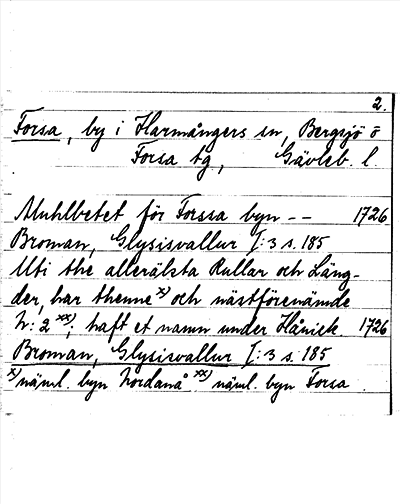 2.
Forsa, by i Harmångers sn, Bergsjö o
Forsa tg, Gävleb. l
Muhlbetet för Forssa byn -- 1726
Broman, Glysisvallur I:3 s. 185
Uti the allerälsta Rullar och Läng-
der, har thenne x) och nästförenämde
N: 2 xx); haft et namn under Hånick. 1726
Broman, Glysisvallur I:3 s. 185
x) näml. byn Nordanå xx) näml. byn Forsa.